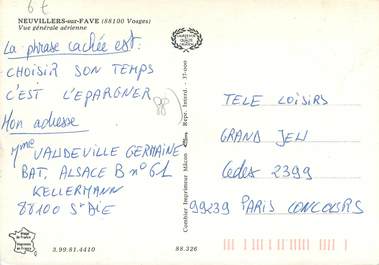 6€
NEUVILLERS-sur-FAVE (88100 Vosges)
Vue générale aérienne
La phrase cachée est:
CHOISIR SON TEMPS
C'EST L'EPARGNER
88)
Mon adresse
Mme VAUDEVILLE GERMAINE
BAT. ALSACE B n° 61
KELLERMANN
88100 St DIE
3.99.81.4410
88.326
Combier Imprimeur Mâcon
Repr. Interd. - 37-000
TELE LOISIRS
GRAND JEU
Cedex 2399
99239 PARIS CONCOURS